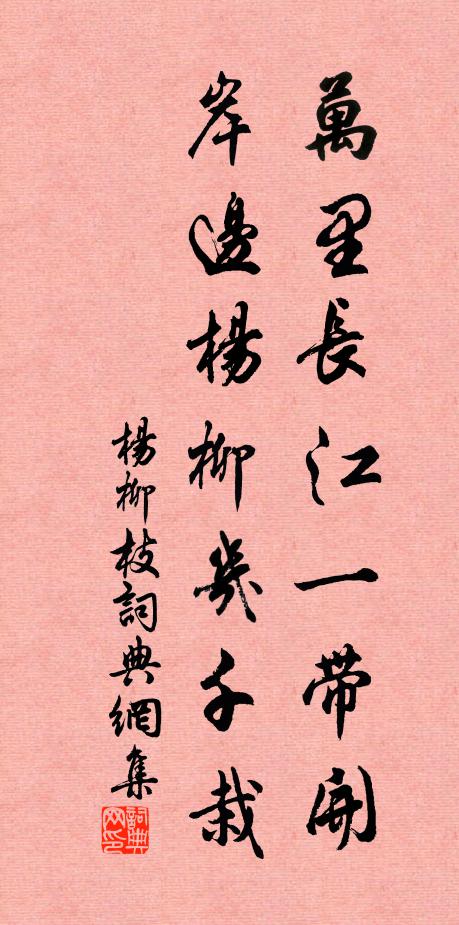 萬里長江一帶開
岸邊楊柳幾千栽
楊柳枝詞典網集
詞典网印